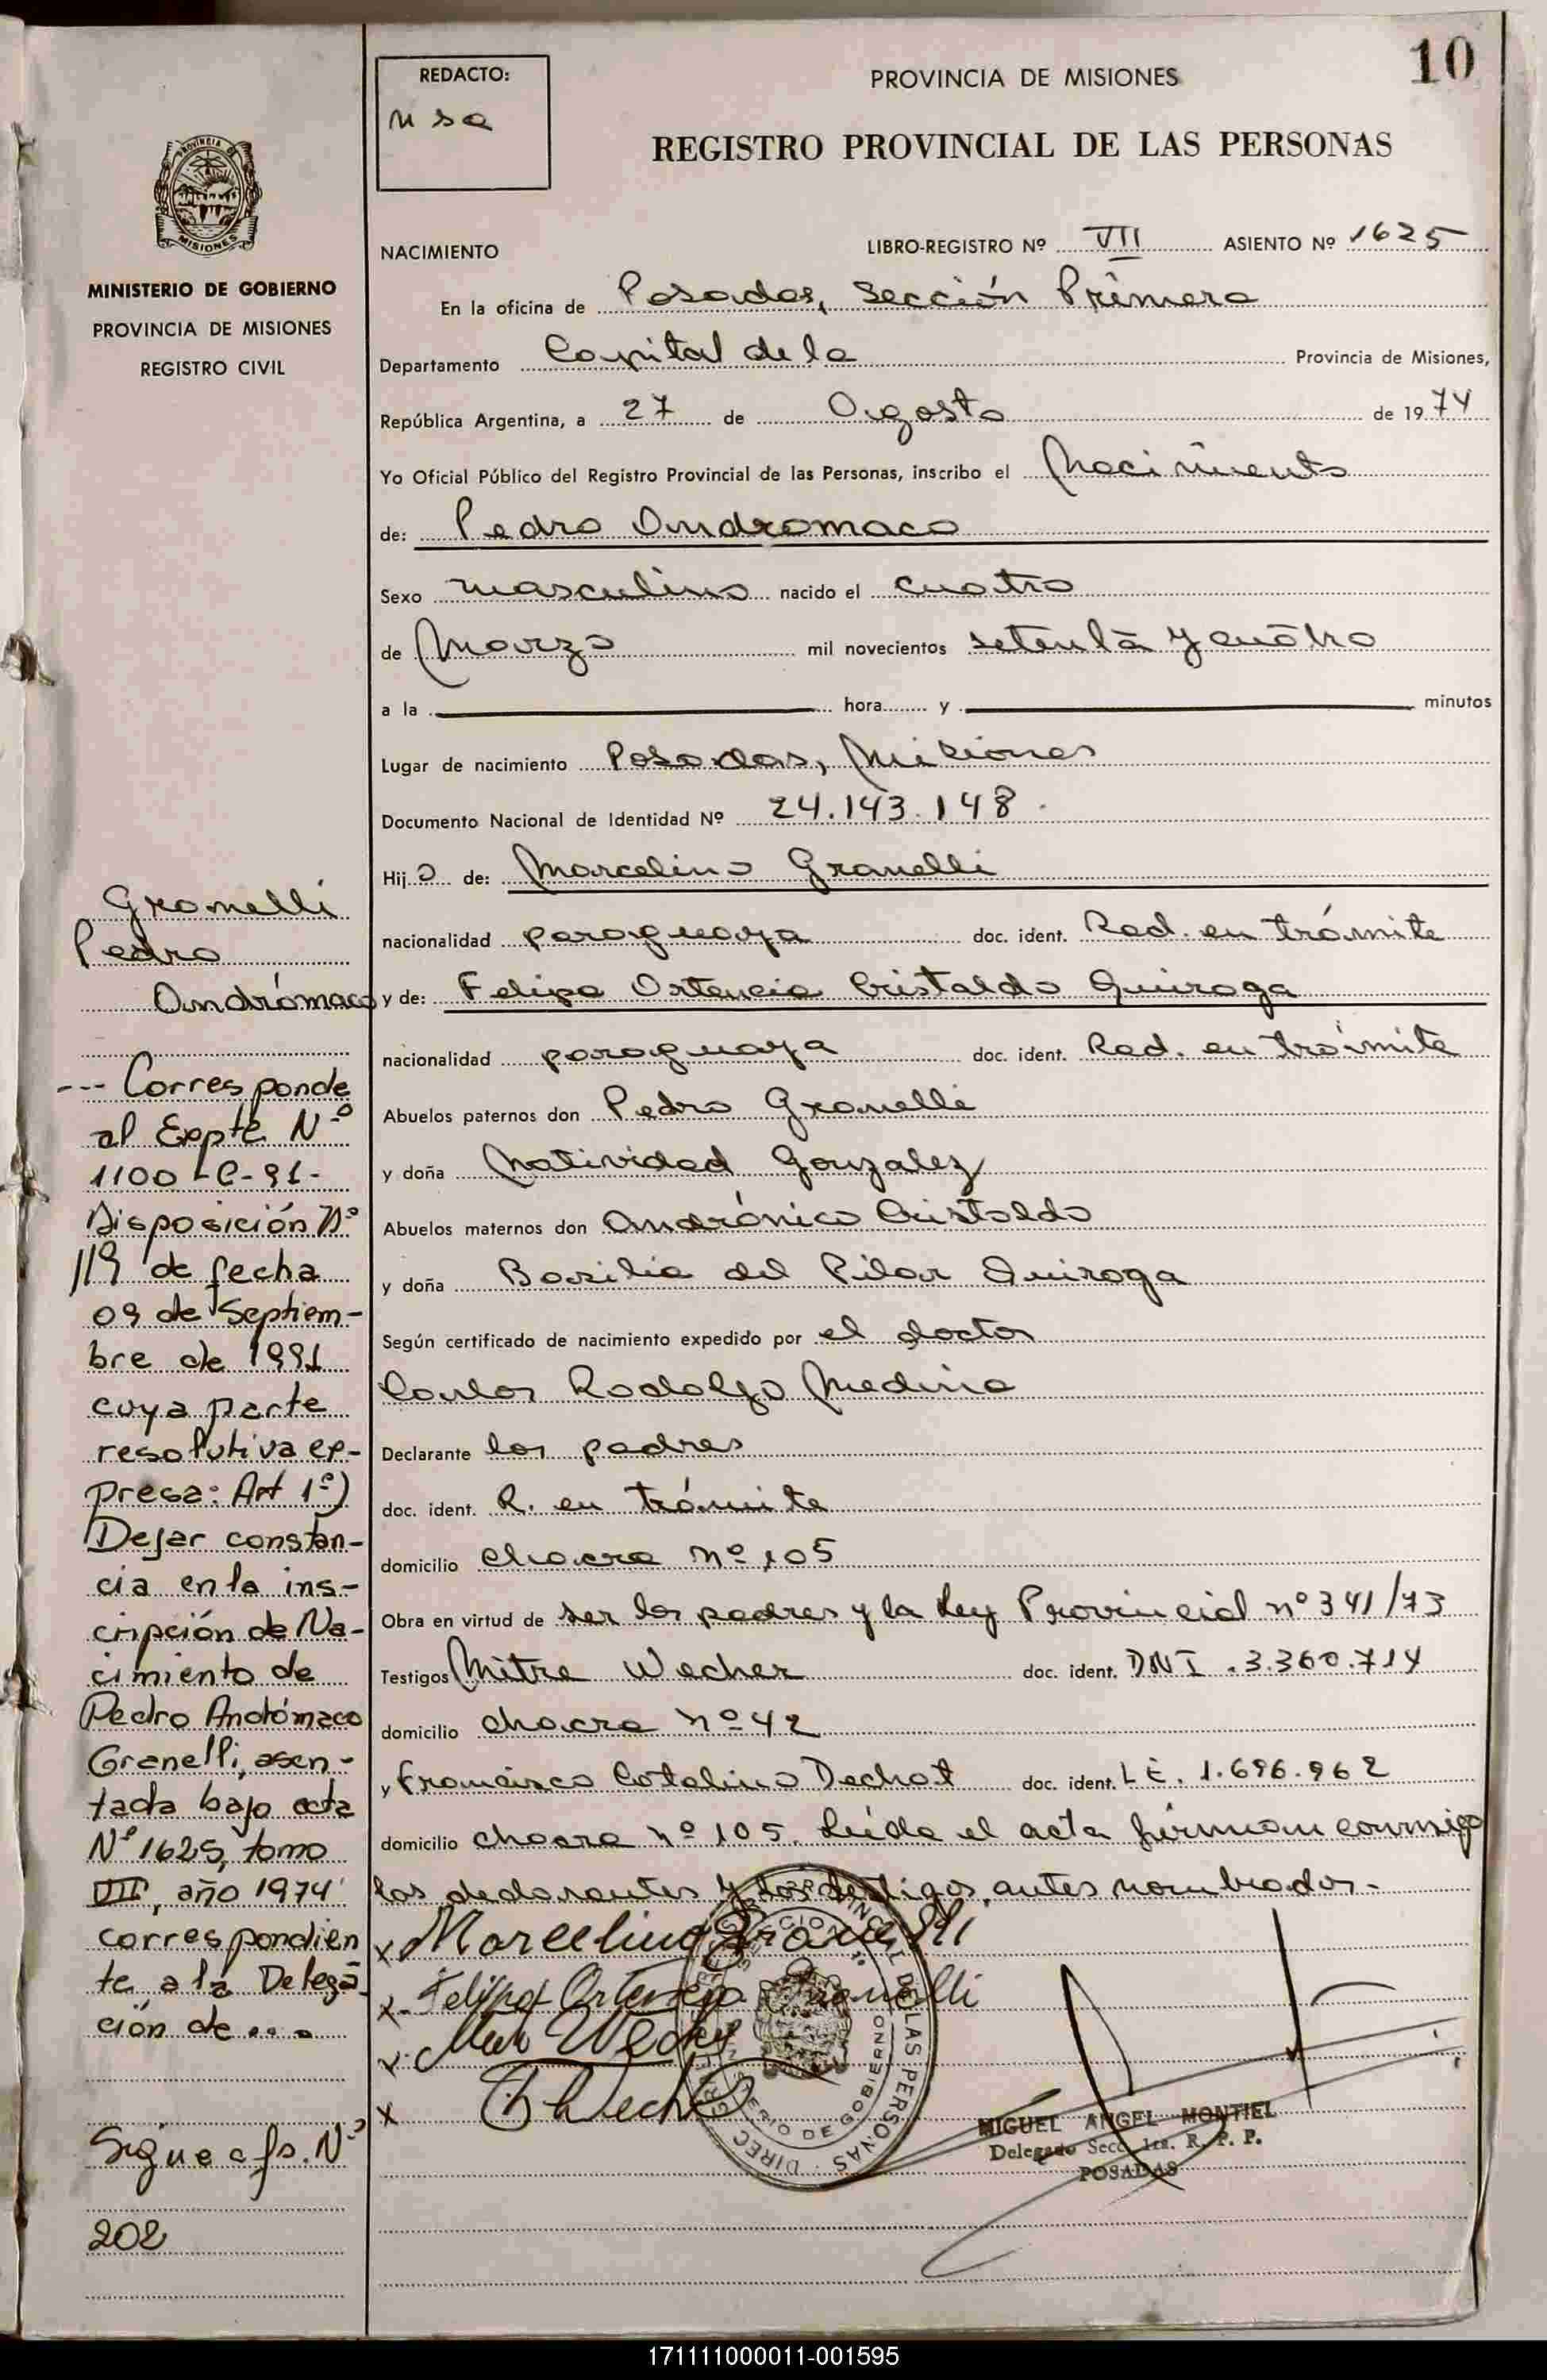 10
REDACTO:
PROVINCIA DE MISIONES
REGISTRO PROVINCIAL DE LAS PERSONAS
PROVINCIA D
MISIONES
MINISTERIO DE GOBIERNO
PROVINCIA DE MISIONES
REGISTRO CIVIL
NACIMIENTO
LIBRO-REGISTRO Nº VII ASIENTO Nº 1625
En la oficina de Posadas, Sección Primera
Departamento Capital de la Provincia de Misiones,
República Argentina, a 27 de Agosto de 1974
Yo Oficial Público del Registro Provincial de las Personas, inscribo el Nacimiento
de: Pedro Andromaco
Sexo masculino nacido el cuatro
de Marzo mil novecientos setenta y cuatro
a la hora y minutos
Lugar de nacimiento Posadas, Misiones
Documento Nacional de Identidad Nº 24.143.148.
Hijo de: Marcelino Granelli
nacionalidad paraguaya doc. ident. Rad. en trámite
y de: Felipa Ortencia Cristaldo Quiroga
nacionalidad paraguaya doc. ident. Rad. en trámite
Abuelos paternos don Pedro Granelli
y doña Natividad Gonzalez
Abuelos maternos don Andrónico Cristaldo
y doña Basilia del Pilar Quiroga
Según certificado de nacimiento expedido por el doctor
Carlos Rodolfo Medina
Declarante los padres
doc. ident. R. en trámite
domicilio chacra nº 105
Obra en virtud de ser los padres y la Ley Provincial nº 341/73
Testigos Mitre Wecher doc. ident. DNI. 3.360.714
domicilio chacra nº 42
y Francisco Catalino Dechat doc. ident. LE. 1.696.962
domicilio chacra nº 105. Leída el acta firman conmigo
los declarantes y los testigos antes nombrados.-
x Marcelino Granelli
x- Felipa Ortencia Granelli
x
x
MIGUEL ANGEL MONTIEL
Delegado Secc. 1ra. R. P. P.
POSADAS
Granelli
Pedro
Andrómaco
--- Corresponde
al Expte Nº
1100-C-91-
Disposición Nº
119 de fecha
09 de Septiem-
bre de 1991
cuya parte
resolutiva ex-
presa: Art 1º)
Dejar constan-
cia en la ins-
cripción de Na-
cimiento de
Pedro Andómaco
Granelli, asen-
tada bajo acta
Nº 1625, tomo
VII, año 1974
correspondien
te a la Delega
ción de...
Sigue a fs. Nº
202
171111000011-001595